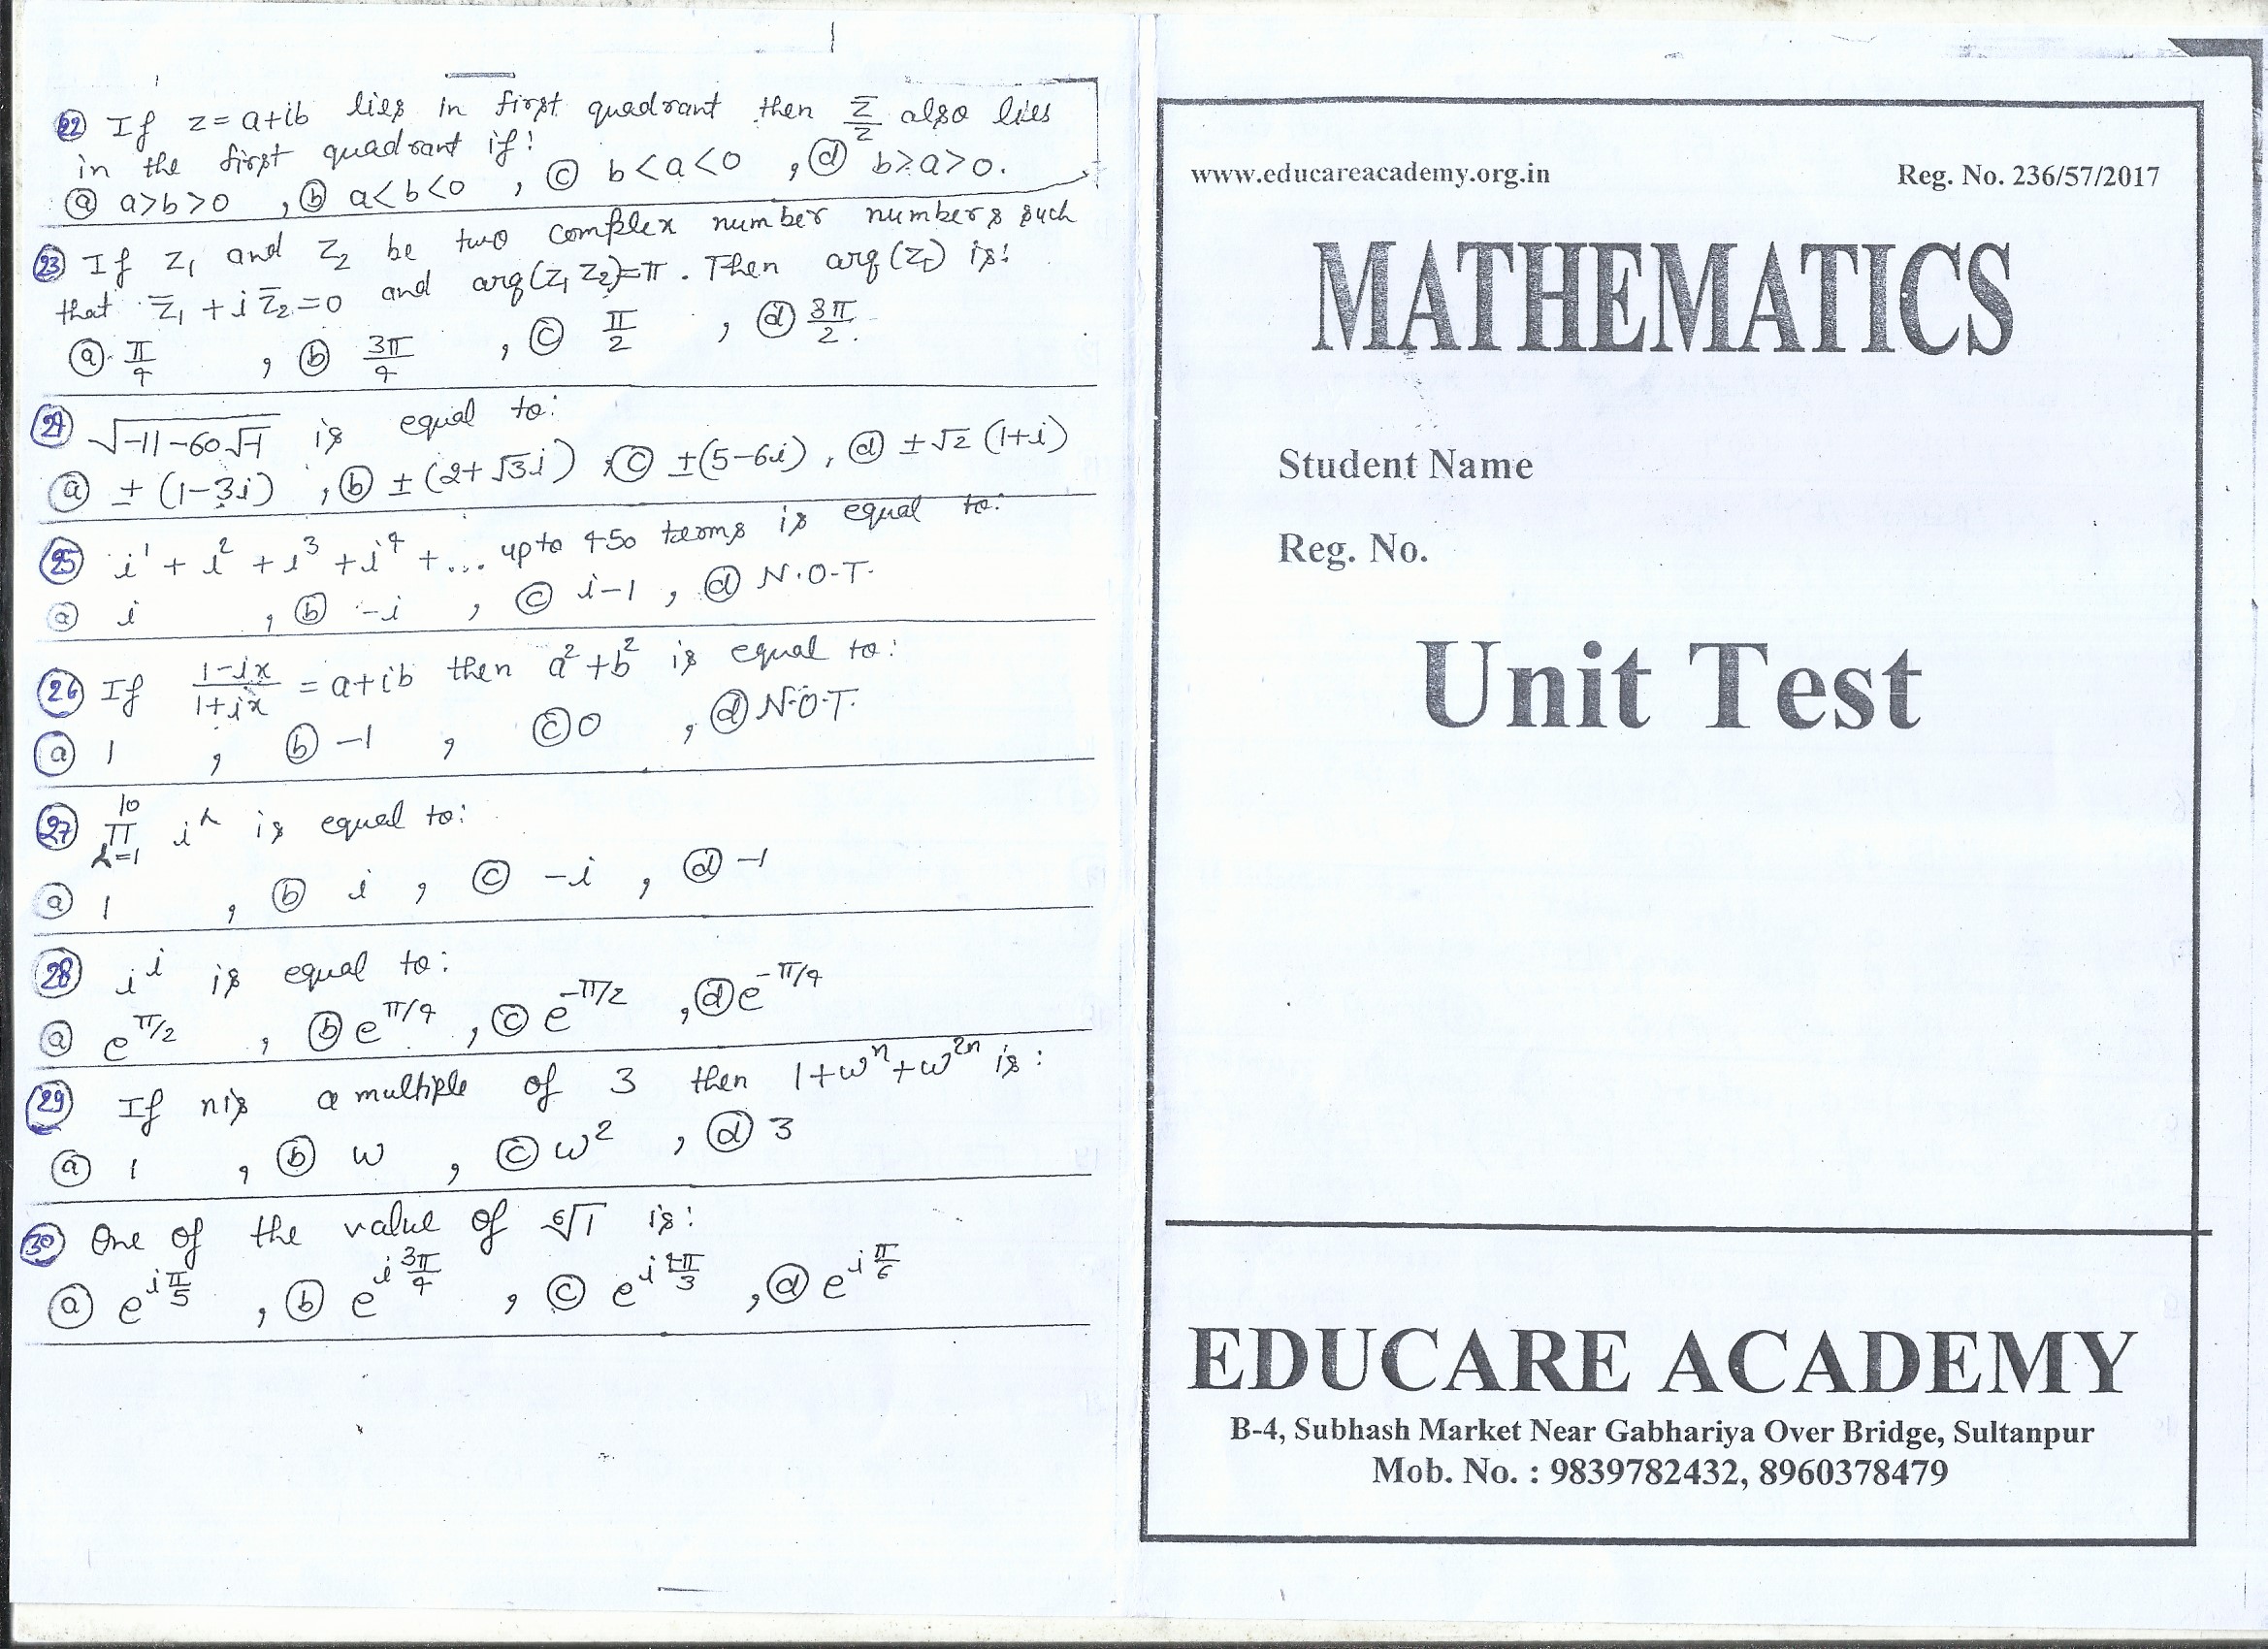 22 If z = a+ib lies in first quadrant then z̅/z also lies
in the first quadrant if:
(a) a>b>0 , (b) a<b<0 , (c) b<a<0 , (d) b>a>0.
23 If z₁ and z₂ be two complex number numbers such
that z̅₁ + i z̅₂ = 0 and arg(z₁ z₂)=π. Then arg(z₁) is:
(a) π/4 , (b) 3π/4 , (c) π/2 , (d) 3π/2.
24 √(-11-60√-1) is equal to:
(a) ±(1-3i) , (b) ±(2+√3i) , (c) ±(5-6i) , (d) ±√2 (1+i)
25 i¹ + i² + i³ + i⁴ + ... upto 450 terms is equal to:
(a) i , (b) -i , (c) i-1 , (d) N.O.T.
26 If (1-ix)/(1+ix) = a+ib then a²+b² is equal to:
(a) 1 , (b) -1 , (c) 0 , (d) N.O.T.
27 10 π r=1 i^r is equal to:
(a) 1 , (b) i , (c) -i , (d) -1
28 i^i is equal to:
(a) e^π/2 , (b) e^π/4 , (c) e^-π/2 , (d) e^-π/4
29 If n is a multiple of 3 then 1+ω^n+ω^2n is:
(a) 1 , (b) ω , (c) ω² , (d) 3
30 One of the value of ⁶√1 is:
(a) e^iπ/5 , (b) e^i3π/4 , (c) e^i4π/3 , (d) e^iπ/6
www.educareacademy.org.in Reg. No. 236/57/2017
MATHEMATICS
Student Name
Reg. No.
Unit Test
EDUCARE ACADEMY
B-4, Subhash Market Near Gabhariya Over Bridge, Sultanpur
Mob. No. : 9839782432, 8960378479